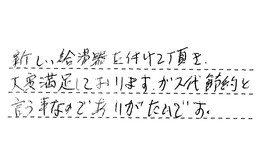 新しい給湯器に付けて頂き、
大変満足しております。ガス代節約と
言う事なのでありがたいです。